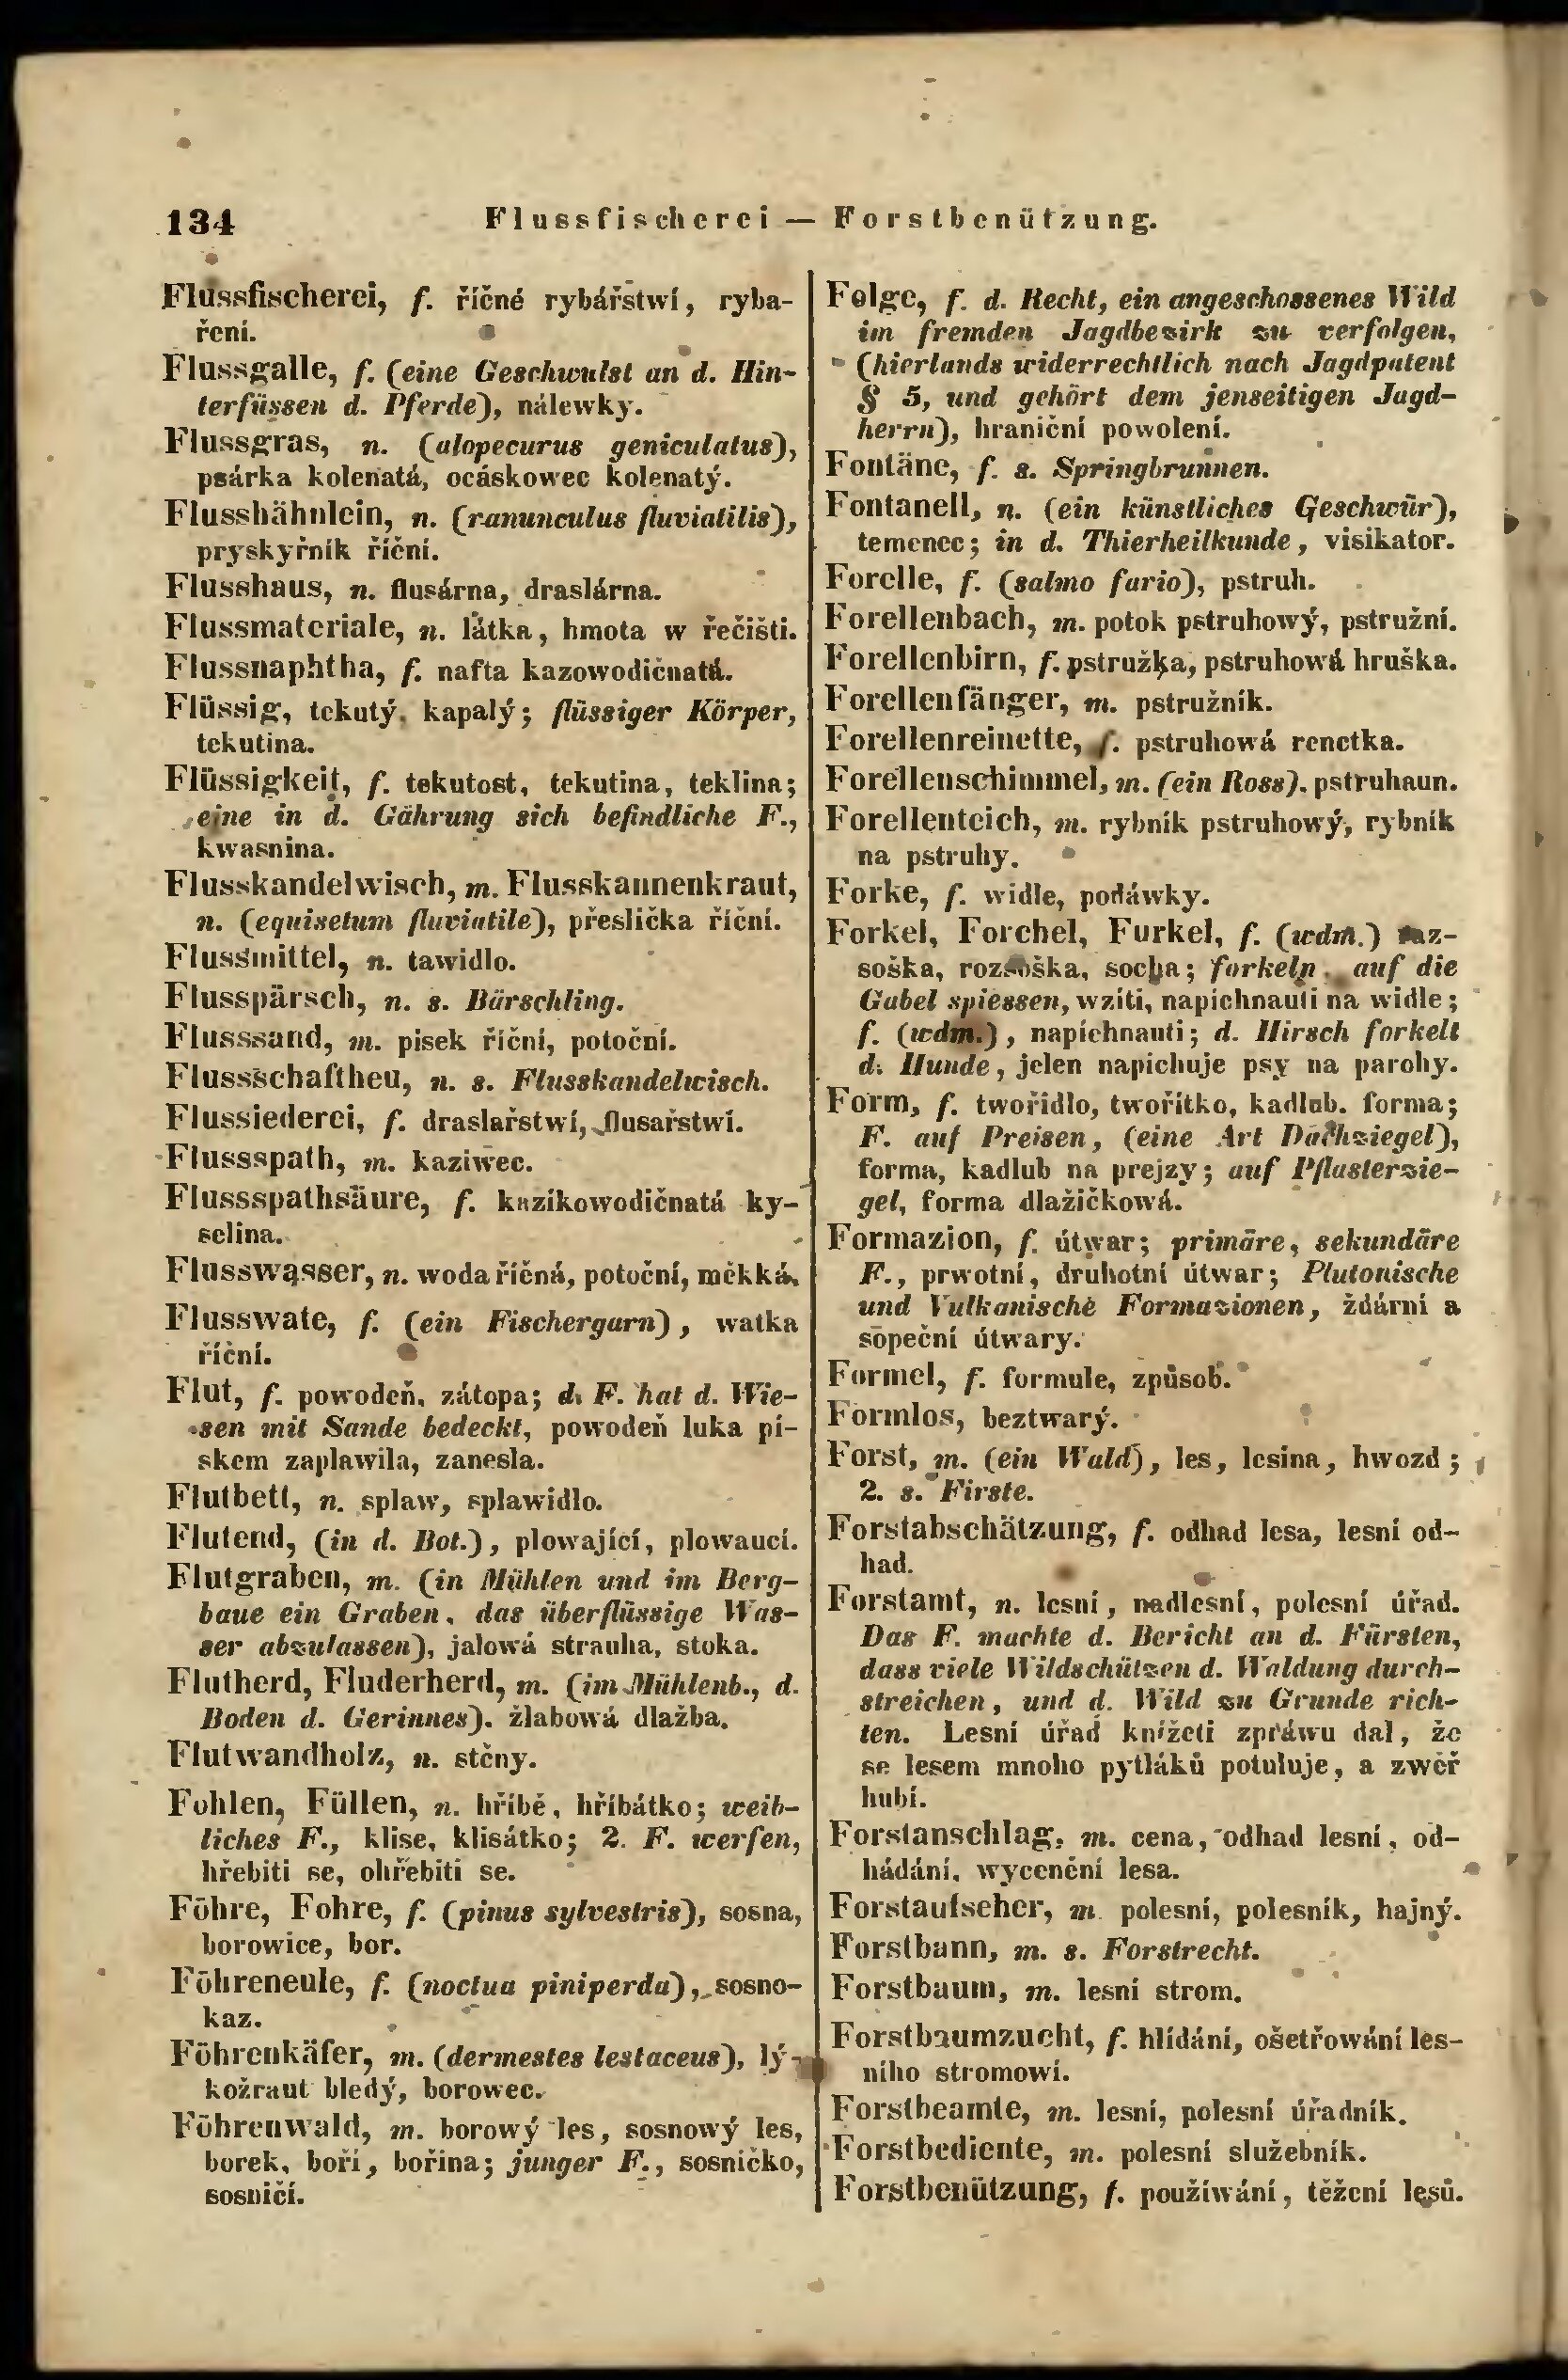 134 Flussfischerei — Forstbenützung.
Flussfischerei, f. říčné rybářstwí, ryba-
ření.
Flussgalle, f. (eine Geschwulst an d. Hin-
terfüssen d. Pferde), nálewky.
Flussgras, n. (alopecurus geniculatus),
psárka kolenatá, ocáskowec kolenatý.
Flusshähnlein, n. (ranunculus fluviatilis),
pryskyřník říční.
Flusshaus, n. flusárna, draslárna.
Flussmateriale, n. látka, hmota w řečišti.
Flussnaphtha, f. nafta kazowodičnatá.
Flüssig, tekutý, kapalý; flüssiger Körper,
tekutina.
Flüssigkeit, f. tekutost, tekutina, teklina;
eine in d. Gährung sich befindliche F.,
kwasnina.
Flusskandelwisch, m. Flusskannenkraut,
n. (equisetum fluviatile), přeslička říční.
Flussmittel, n. tawidlo.
Flusspärsch, n. s. Bärschling.
Flusssand, m. pisek říční, potoční.
Flussschaftheu, n. s. Flusskandelwisch.
Flussiederei, f. draslařstwí, flusařstwí.
Flussspath, m. kaziwec.
Flussspathsäure, f. kazíkowodičnatá ky-
selina.
Flusswasser, n. woda říčná, potoční, měkká.
Flusswate, f. (ein Fischergarn), watka
říční.
Flut, f. powodeň, zátopa; d. F. hat d. Wie-
sen mit Sande bedeckt, powodeň luka pí-
skem zaplawila, zanesla.
Flutbett, n. splaw, splawidlo.
Flutend, (in d. Bot.), plowající, plowaucí.
Flutgraben, m. (in Mühlen und im Berg-
baue ein Graben, das überflüssige Was-
ser abzulassen), jalowá strauha, stoka.
Flutherd, Fluderherd, m. (im Mühlenb., d.
Boden d. Gerinnes), žlabowá dlažba.
Flutwandholz, n. stěny.
Fohlen, Füllen, n. hříbě, hříbátko; weib-
liches F., klise, klisátko; 2. F. werfen,
hřebiti se, ohřebiti se.
Föhre, Fohre, f. (pinus sylvestris), sosna,
borowice, bor.
Föhreneule, f. (noctua piniperda), sosno-
kaz.
Föhrenkäfer, m. (dermestes testaceus), lý-
kožraut bledý, borowec.
Föhrenwald, m. borowý les, sosnowý les,
borek, boří, bořina; junger F., sosničko,
sosničí.
Folge, f. d. Recht, ein angeschossenes Wild
im fremden Jagdbezirk zu verfolgen,
(hierlands widerrechtlich nach Jagdpatent
§ 5, und gehört dem jenseitigen Jagd-
herrn), hraniční powolení.
Fontäne, f. s. Springbrunnen.
Fontanell, n. (ein künstliches Geschwür),
temenec; in d. Thierheilkunde, visikator.
Forelle, f. (salmo fario), pstruh.
Forellenbach, m. potok pstruhowý, pstružní.
Forellenbirn, f. pstružka, pstruhowá hruška.
Forellenfänger, m. pstružník.
Forellenreinette, f. pstruhowá renetka.
Forellenschimmel, m. (ein Ross), pstruhaun.
Forellenteich, m. rybník pstruhowý, rybník
na pstruhy.
Forke, f. widle, podáwky.
Forkel, Forchel, Furkel, f. (wdm.) raz-
soška, rozsoška, socha; forkeln, auf die
Gabel spiessen, wzíti, napichnauti na widle;
f. (wdm.), napíchnauti; d. Hirsch forkelt
d. Hunde, jelen napichuje psy na parohy.
Form, f. twořidlo, twořítko, kadlub, forma;
F. auf Preisen, (eine Art Dachziegel),
forma, kadlub na prejzy; auf Pflasterzie-
gel, forma dlažičkowá.
Formazion, f. útwar; primäre, sekundäre
F., prwotní, druhotní útwar; Plutonische
und Vulkanische Formazionen, ždární a
sopeční útwary.
Formel, f. formule, způsob.
Formlos, beztwarý.
Forst, m. (ein Wald), les, lesina, hwozd;
2. s. Firste.
Forstabschätzung, f. odhad lesa, lesní od-
had.
Forstamt, n. lesní, nadlesní, polesní úřad.
Das F. machte d. Bericht an d. Fürsten,
dass viele Wildschützen d. Waldung durch-
streichen, und d. Wild zu Grunde rich-
ten. Lesní úřad knížeti zpráwu dal, že
se lesem mnoho pytláků potuluje, a zwěř
hubí.
Forstanschlag, m. cena, odhad lesní, od-
hádání, wycenění lesa.
Forstaufseher, m. polesní, polesník, hajný.
Forstbann, m. s. Forstrecht.
Forstbaum, m. lesní strom.
Forstbaumzucht, f. hlídání, ošetřowání les-
ního stromowí.
Forstbeamte, m. lesní, polesní úřadník.
Forstbediente, m. polesní služebník.
Forstbenützung, f. použíwání, těžení lesů.